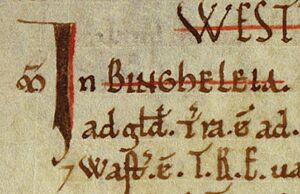 WEST
ꝏ̄ In BINGHELEIA.
ad glđ. t̄ra. ē ad.
⁊ Waſt'. ē. T. R. E. ua